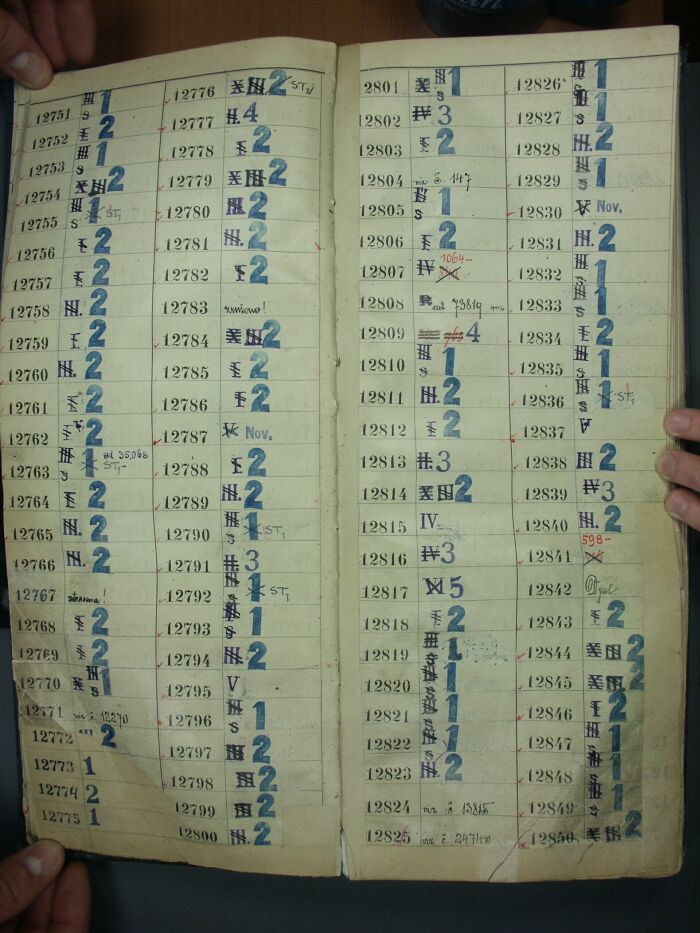 12751 III s 1
12752 I 2
12753 III s 1
12754 X III 2
12755 III s 1 ST1
12756 I 2
12757 I 2
12758 III. 2
12759 I 2
12760 III. 2
12761 I 2
12762 I 2
12763 III s 1 od 35,068 ST1-
12764 I 2
12765 III. 2
12766 III. 2
12767
12768 I 2
12769 I 2
12770 X III s 1
12771 viz č 12270
12772 III 2
12773 1
12774 2
12775 1
12776 X III 2
12777 II. 4
12778 I 2
12779 X III 2
12780 III 2
12781 III. 2
12782 I 2
12783
12784 X III 2
12785 I 2
12786 I 2
12787 V Nov.
12788 I 2
12789 III. 2
12790 III s 1 ST1
12791 II. 3
12792 III s 1 ST1
12793 I III s 1
12794 III. 2
12795 V
12796 III s 1
12797 III 2
12798 III 2
12799 III 2
12800 III. 2
2801 X III s 1
12802 IV 3
12803 I 2
12804 viz č 147
12805 III s 1
12806 I 2
12807 IV 1064-
12808 73819
12809 4
12810 III s 1
12811 III. 2
12812 I 2
12813 II. 3
12814 X III 2
12815 IV
12816 IV 3
12817 XI 5
12818 I 2
12819 III s 1
12820 III s 1
12821 III s 1
12822 III s 1
12823 III. 2
12824 viz č 13815
12825 viz č 24700
12826 III s 1
12827 III s 1
12828 III. 2
12829 III s 1
12830 V Nov.
12831 III. 2
12832 III s 1
12833 III s 1
12834 I 2
12835 III s 1
12836 III s 1 ST1
12837 V
12838 III 2
12839 IV 3
12840 III. 2
12841 598-
12842
12843 I 2
12844 X III 2
12845 X III 2
12846 I 2
12847 III s 1
12848 III s 1
12849 III s 1
12850 X III 2